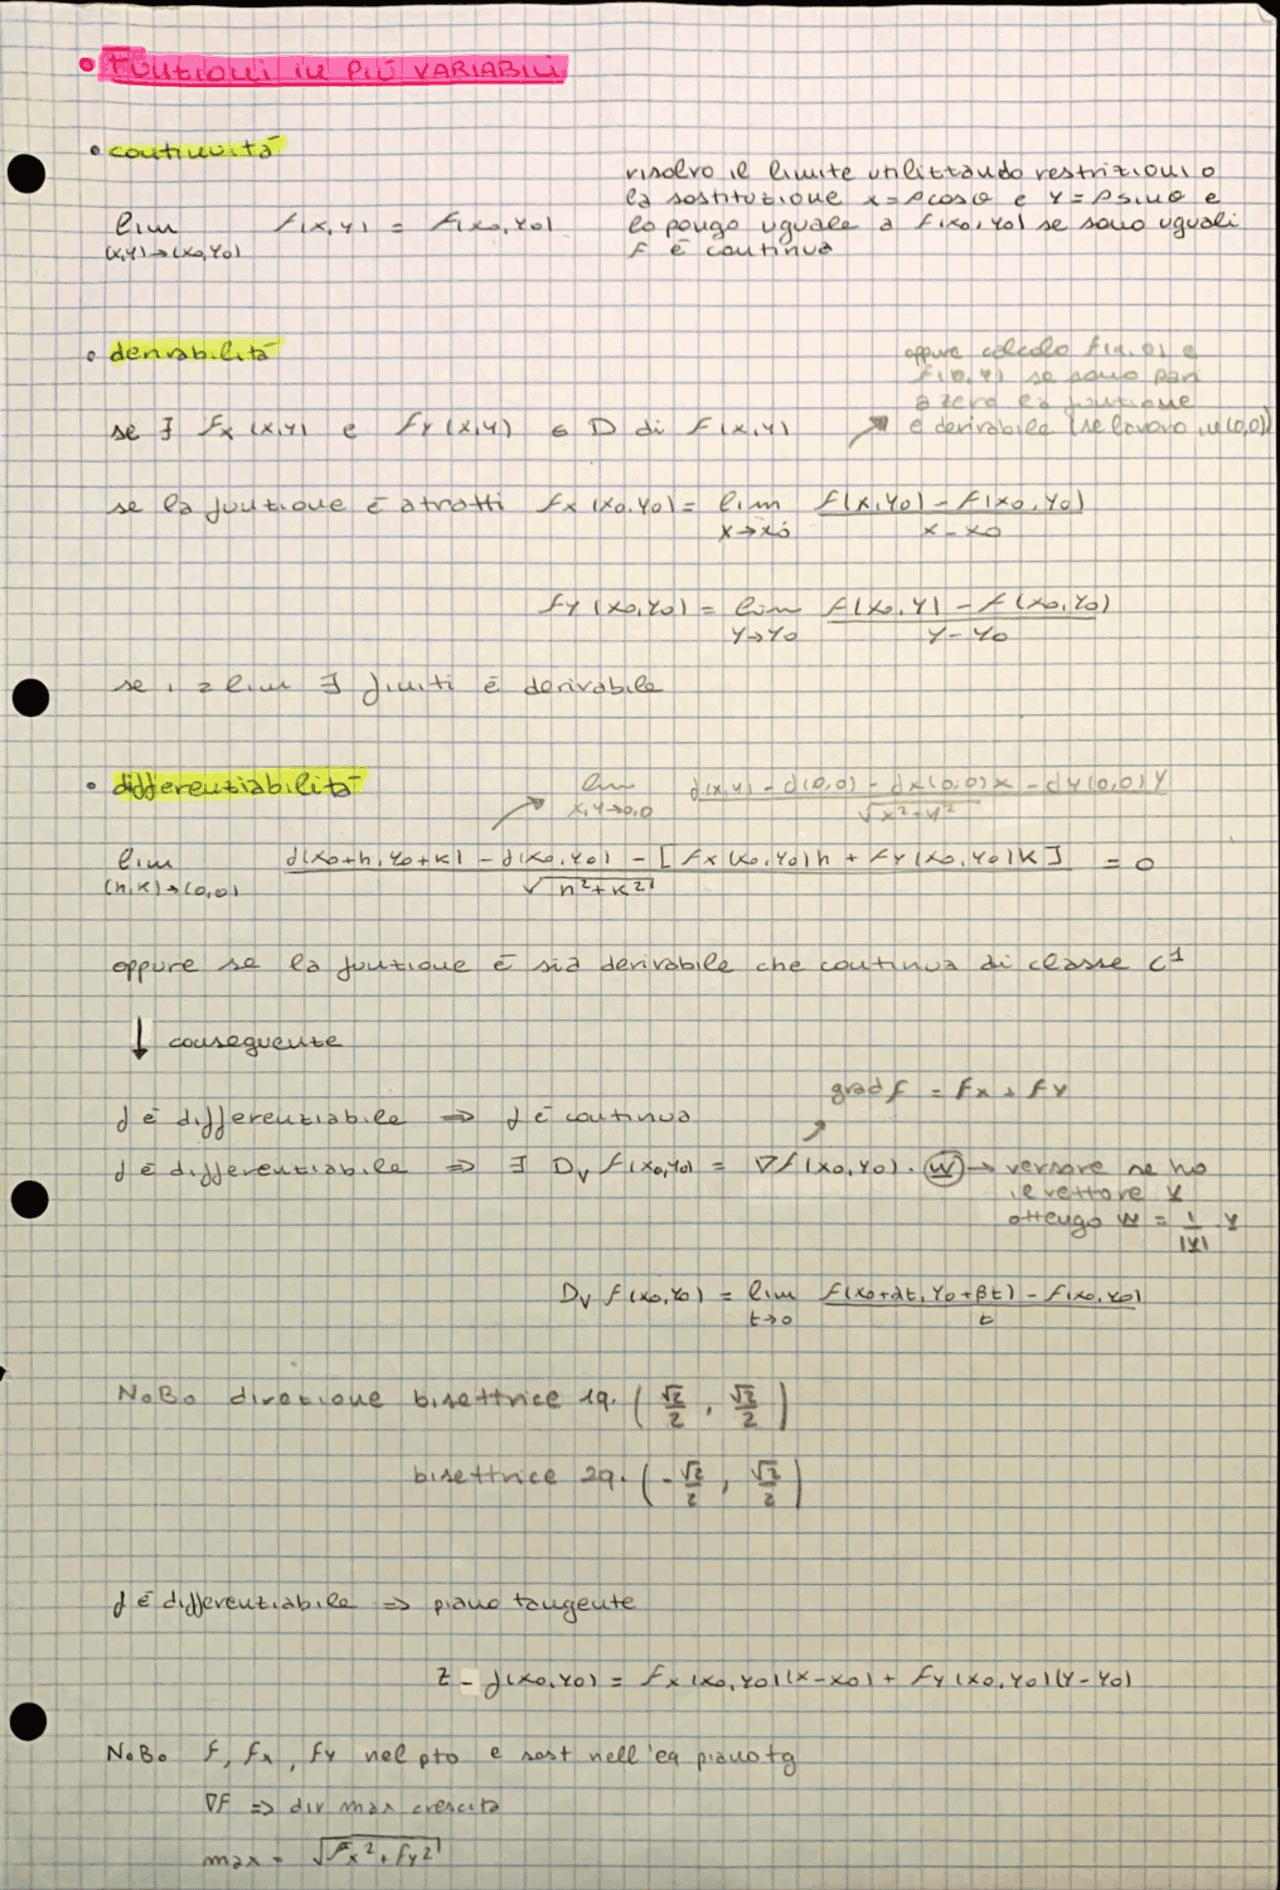 • FUNZIONI IN PIÙ VARIABILI
• continuità
risolvo il limite utilizzando restrizioni o
la sostituzione x=ρcosθ e y=ρsinθ e
lim f(x,y) = f(x₀,y₀) lo pongo uguale a f(x₀,y₀) se sono uguali
(x,y)→(x₀,y₀) F è continua
• derivabilità
oppure calcolo f(x,0) e
f(0,y) se sono pari
a zero la funzione
se ∃ fx(x,y) e fy(x,y) ∈ D di F(x,y) ↗ è derivabile (se lavoro in (0,0))
se la funzione è a tratti fx(x₀,y₀) = lim f(x,y₀) - f(x₀,y₀)
x→x₀ x - x₀
fy(x₀,y₀) = lim f(x₀,y) - f(x₀,y₀)
y→y₀ y - y₀
se i 2 lim ∃ finiti è derivabile
• differenziabilità
↗ lim f(x,y) - f(0,0) - fx(0,0)x - fy(0,0)y
x,y→0,0 √x²+y²
lim f(x₀+h,y₀+k) - f(x₀,y₀) - [fx(x₀,y₀)h + fy(x₀,y₀)k] = 0
(h,k)→(0,0) √h²+k²
oppure se la funzione è sia derivabile che continua di classe C¹
↓ conseguente
grad f = fx + fy
f è differenziabile ⇒ f è continua
f è differenziabile ⇒ ∃ Dv f(x₀,y₀) = ∇f(x₀,y₀) · w → versore se ho
il vettore v
ottengo w = 1 v
|v|
Dv f(x₀,y₀) = lim f(x₀+αt, y₀+βt) - f(x₀,y₀)
t→0 t
N.B. direzione bisettrice 1q. (√2/2, √2/2)
bisettrice 2q. (-√2/2, √2/2)
f è differenziabile ⇒ piano tangente
z - f(x₀,y₀) = fx(x₀,y₀)(x-x₀) + fy(x₀,y₀)(y-y₀)
N.B. f, fx, fy nel pto e sost nell'eq piano tg
∇F ⇒ dir max crescita
max = √fx²+fy²